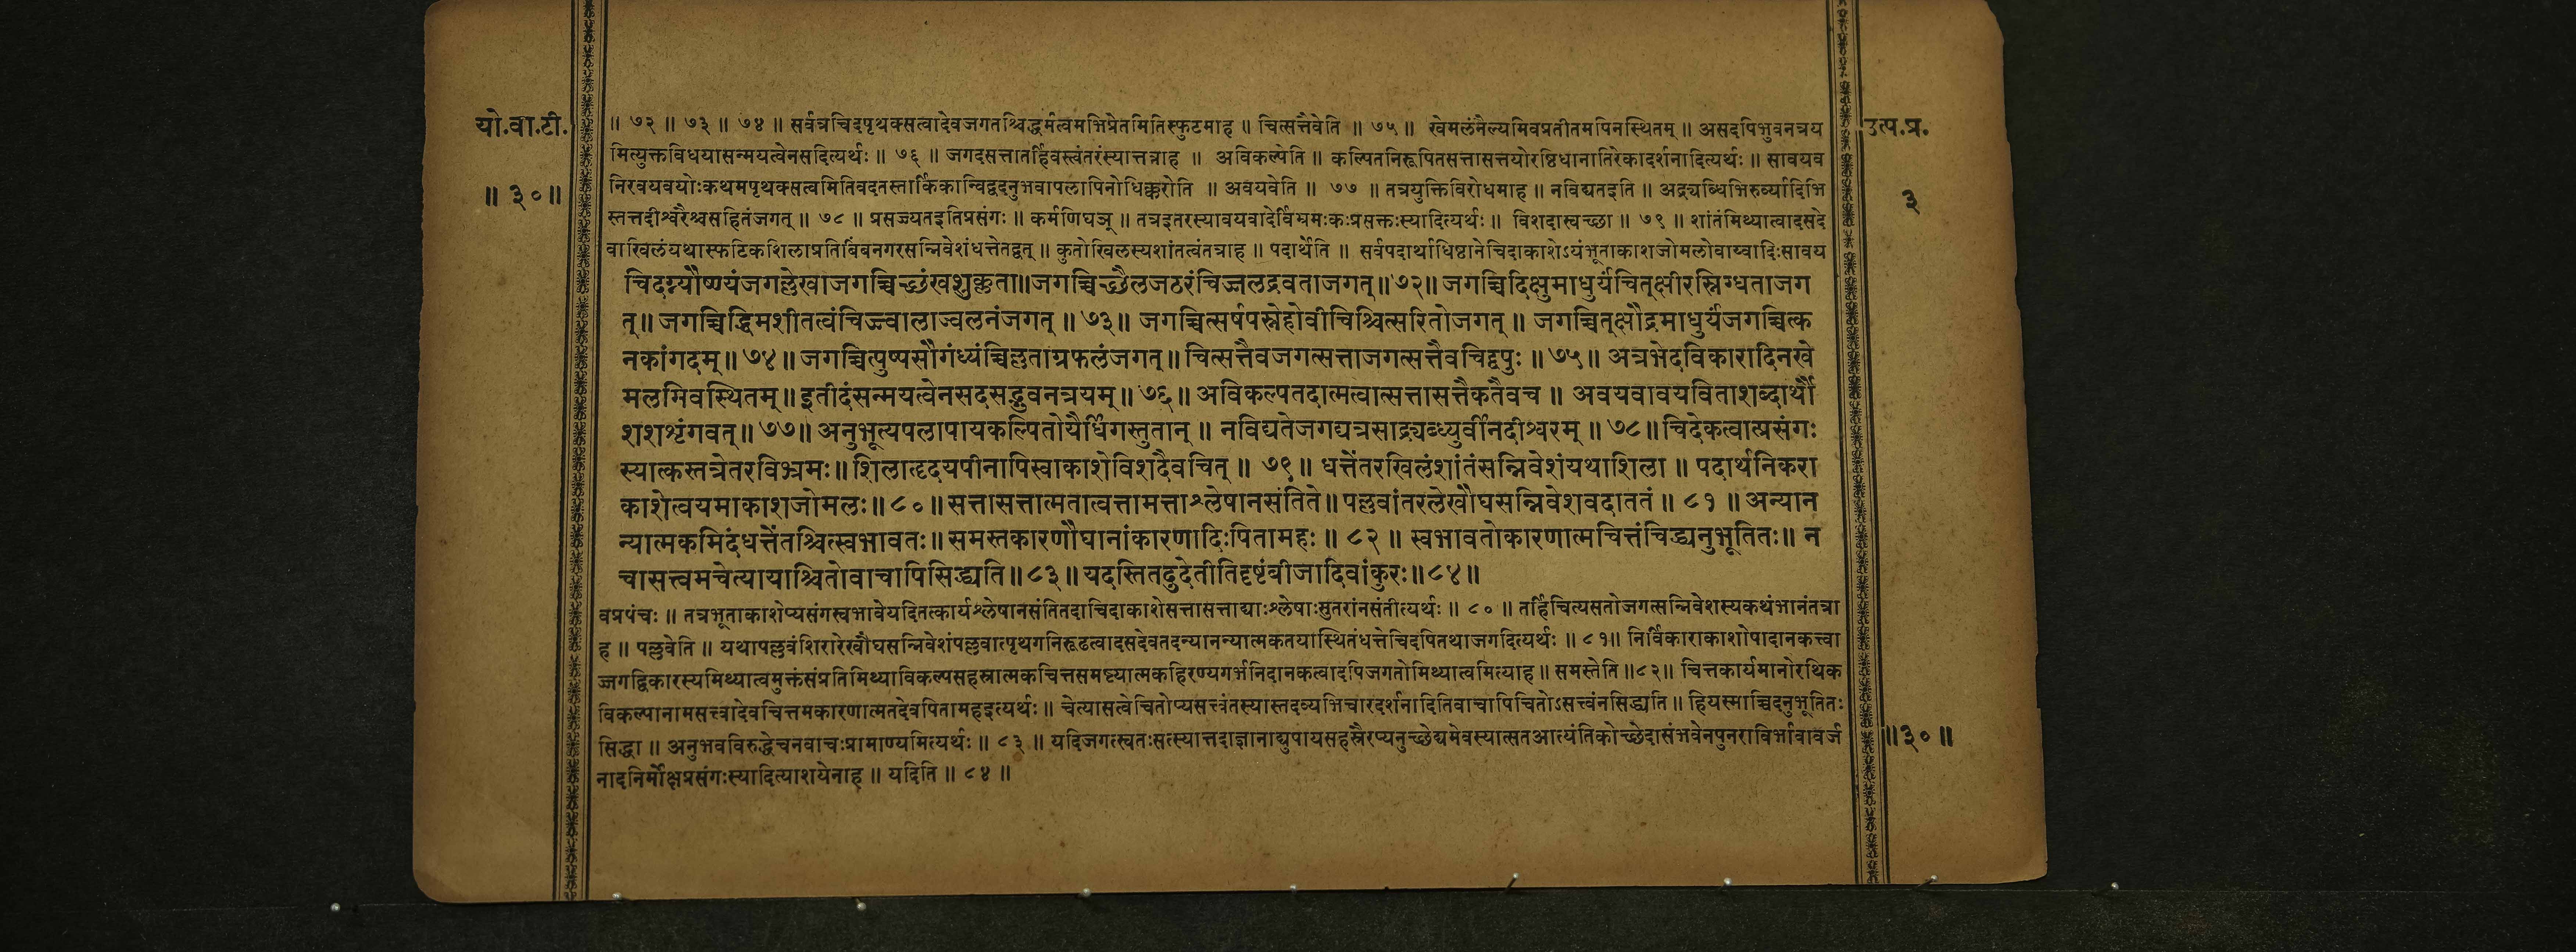 यो.वा.टी.
॥ ३० ॥
॥ ७२ ॥ ७३ ॥ ७४ ॥ सर्वत्रचिदपृथक्सत्वादेवजगतश्चिद्धर्मत्वमभिप्रेतमितिस्फुटमाह ॥ चित्सत्तैवेति ॥ ७५ ॥ खेमलंनैल्यमिवप्रतीतमपिनस्थितम् ॥ असदपिभुवनत्रय
मित्युक्तविधयासन्मयत्वेनसदित्यर्थः ॥ ७६ ॥ जगदसत्तातर्हिवस्त्वंतरंस्यात्तत्राह ॥ अविकल्पेति ॥ कल्पितनिरूपितसत्तासत्तयोरधिष्ठानातिरेकादर्शनादित्यर्थः ॥ सावयव
निरवयवयोःकथमपृथक्सत्वमितिवदतस्तार्किकान्विद्वदनुभवापलापिनोधिक्करोति ॥ अवयवेति ॥ ७७ ॥ तत्रयुक्तिविरोधमाह ॥ नविद्यतइति ॥ अद्र्यब्धिभिरुर्व्यादिभि
स्तत्तदीश्वरैश्चसहितंजगत् ॥ ७८ ॥ प्रसज्यतइतिप्रसंगः ॥ कर्मणिघञ् ॥ तत्रइतरस्यावयवादेर्विभ्रमःकःप्रसक्तःस्यादित्यर्थः ॥ विशदास्वच्छा ॥ ७९ ॥ शांतंमिथ्यात्वादसदे
वाखिलंयथास्फटिकशिलाप्रतिबिंबनगरसन्निवेशंधत्तेतद्वत् ॥ कुतोखिलस्यशांतत्वंतत्राह ॥ पदार्थेति ॥ सर्वपदार्थाधिष्ठानेचिदाकाशेऽयंभूताकाशजोमलोवाय्वादिःसावय
चिदग्न्यौष्ण्यंजगल्लेखाजगच्चिच्छंखशुक्लता॥जगच्चिच्छैलजठरंचिज्जलद्रवताजगत्॥७२॥ जगच्चिदिक्षुमाधुर्यंचित्क्षीरस्निग्धताजग
त्॥ जगच्चिद्धिमशीतत्वंचिज्ज्वालाज्वलनंजगत् ॥ ७३॥ जगच्चित्सर्षपस्नेहोवीचिश्चित्सरितोजगत् ॥ जगच्चित्क्षौद्रमाधुर्यंजगच्चित्क
नकांगदम्॥ ७४॥ जगच्चित्पुष्पसौगंध्यंच्चिल्लताग्रफलंजगत्॥ चित्सत्तैवजगत्सत्ताजगत्सत्तैवचिद्वपुः ॥ ७५॥ अत्रभेदविकारादिनखे
मलमिवस्थितम्॥ इतीदंसन्मयत्वेनसदसद्भुवनत्रयम्॥ ७६॥ अविकल्पतदात्मत्वात्सत्तासत्तैकतैवच ॥ अवयवावयविताशब्दार्थौ
शशशृंगवत्॥ ७७॥ अनुभूत्यपलापायकल्पितोयैर्धिगस्तुतान् ॥ नविद्यतेजगद्यत्रसाद्र्यब्ध्युर्वीनदीश्वरम् ॥ ७८॥ चिदेकत्वात्प्रसंगः
स्यात्कस्तत्रेतरविभ्रमः॥ शिलाहृदयपीनापिस्वाकाशेविशदैवचित् ॥ ७९॥ धत्तेंतरखिलंशांतंसन्निवेशंयथाशिला ॥ पदार्थनिकरा
काशेत्वयमाकाशजोमलः॥ ८०॥ सत्तासत्तात्मतात्वत्तामत्ताश्लेषानसंतिते॥ पल्लवांतरलेखौघसन्निवेशवदाततं ॥ ८१ ॥ अन्यान
न्यात्मकमिदंधत्तेंतश्चित्स्वभावतः॥ समस्तकारणौघानांकारणादिःपितामहः ॥ ८२ ॥ स्वभावतोकारणात्मचित्तंचिद्ध्यनुभूतितः॥ न
चासत्त्वमचेत्यायाश्चितोवाचापिसिद्ध्यति॥ ८३॥ यदस्तितदुदेतीतिदृष्टंबीजादिवांकुरः॥८४॥
वप्रपंचः ॥ तत्रभूताकाशेप्यसंगस्वभावेयदितत्कार्यश्लेषानसंतितदाचिदाकाशेसत्तासत्ताद्याःश्लेषाःसुतरांनसंतीत्यर्थः ॥ ८० ॥ तर्हिचित्यसतोजगत्सन्निवेशस्यकथंभानंतत्रा
ह ॥ पल्लवेति ॥ यथापल्लवंशिरारेखौघसन्निवेशंपल्लवात्पृथगनिरूढत्वादसदेवतदन्यानन्यात्मकतयास्थितंधत्तेचिदपितथाजगदित्यर्थः ॥ ८१॥ निर्विकाराकाशोपादानकत्त्वा
ज्जगद्विकारस्यमिथ्यात्वमुक्तंसंप्रतिमिथ्याविकल्पसहस्रात्मकचित्तसमष्ट्यात्मकहिरण्यगर्भनिदानकत्वादपिजगतोमिथ्यात्वमित्याह ॥ समस्तेति ॥८२॥ चित्तकार्यमानोरथिक
विकल्पानामसत्त्वादेवचित्तमकारणात्मतदेवपितामहइत्यर्थः ॥ चेत्यासत्वेचितोप्यसत्त्वंतस्यास्तदव्यभिचारदर्शनादितिवाचापिचितोऽसत्त्वंनसिद्ध्यति ॥ हियस्माच्चिदनुभूतितः
सिद्धा ॥ अनुभवविरुद्धेचनवाचःप्रामाण्यमित्यर्थः ॥ ८३ ॥ यदिजगत्स्वतःसत्स्यात्तदाज्ञानाद्युपायसहस्रैरप्यनुच्छेद्यमेवस्यात्सतआत्यंतिकोच्छेदासंभवेनपुनराविर्भावावर्ज
नादनिर्मोक्षप्रसंगःस्यादित्याशयेनाह ॥ यदिति ॥ ८४ ॥
उत्प.प्र.
३
॥३०॥